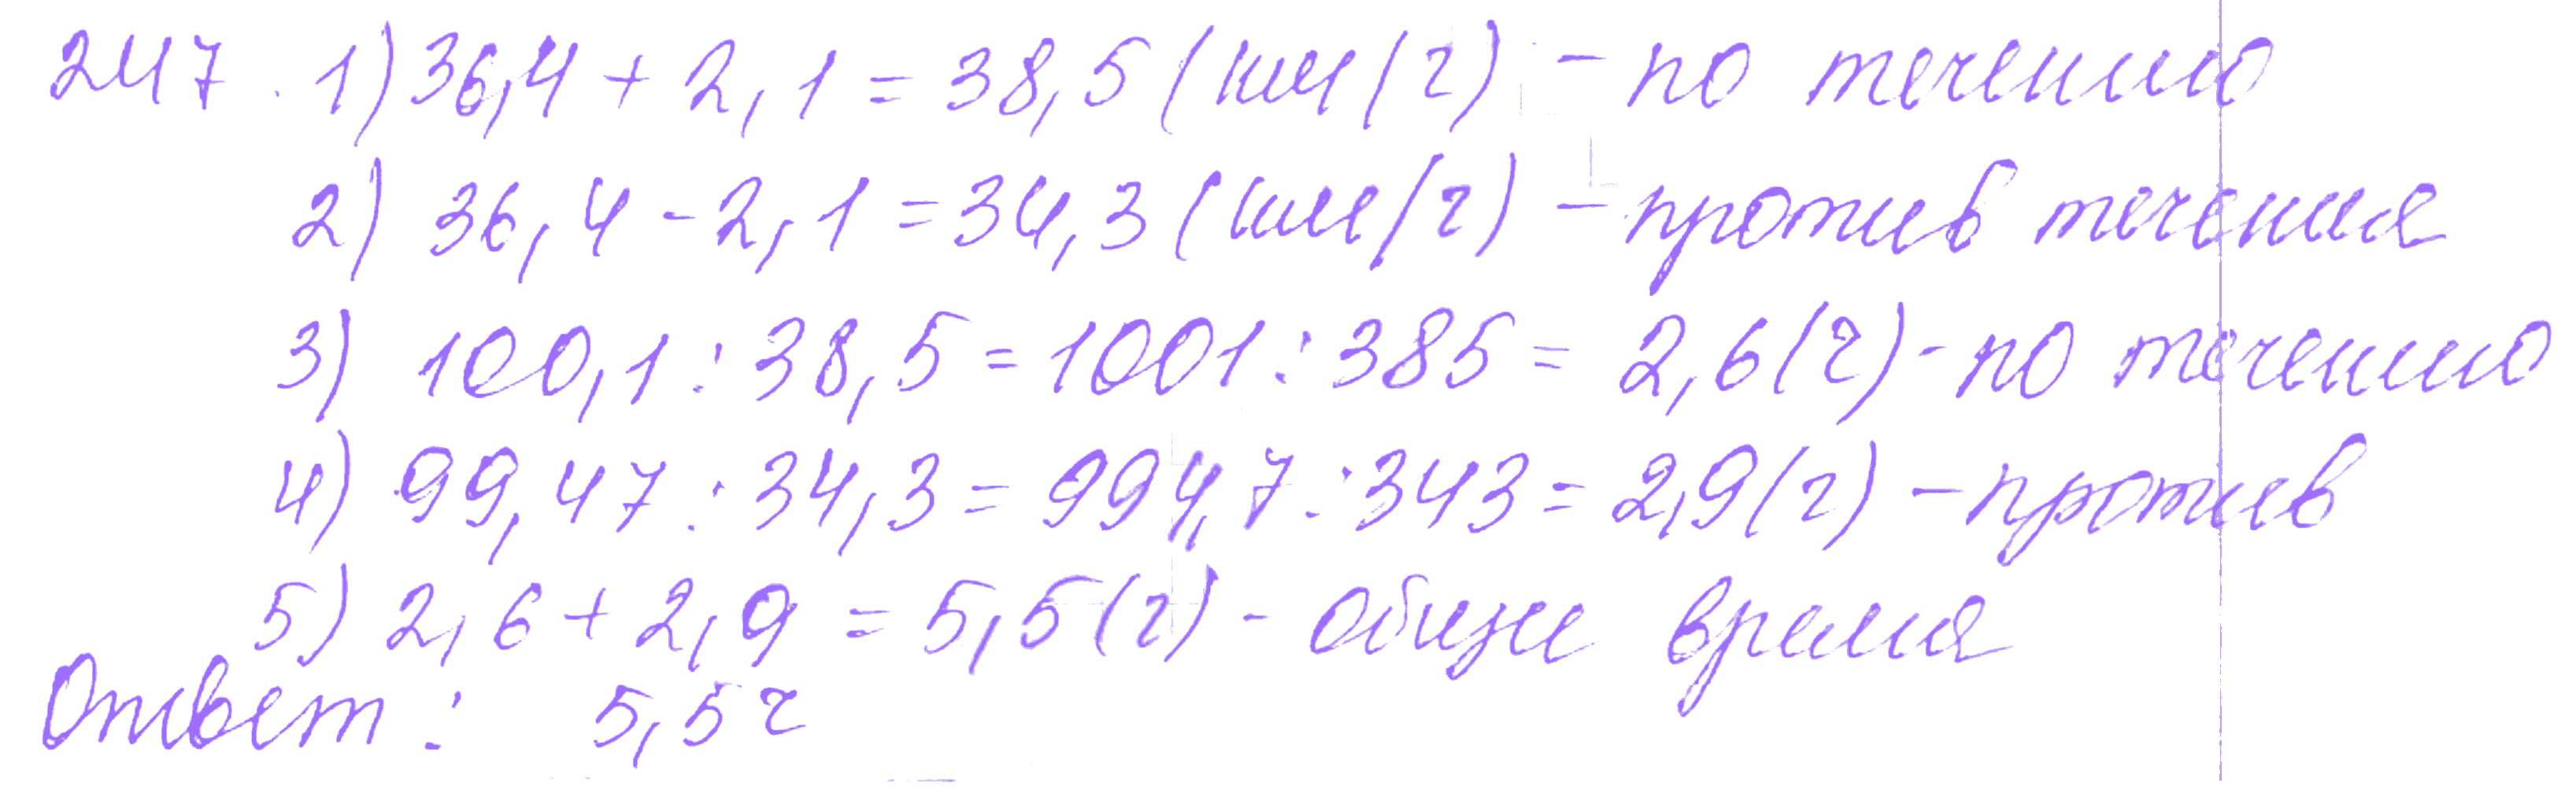 247. 1) 36,4 + 2,1 = 38,5 (км/ч) - по течению
2) 36,4 - 2,1 = 34,3 (км/ч) - против течения
3) 100,1 : 38,5 = 1001 : 385 = 2,6 (ч) - по течению
4) 99,47 : 34,3 = 994,7 : 343 = 2,9 (ч) - против
5) 2,6 + 2,9 = 5,5 (ч) - общее время
Ответ: 5,5 ч